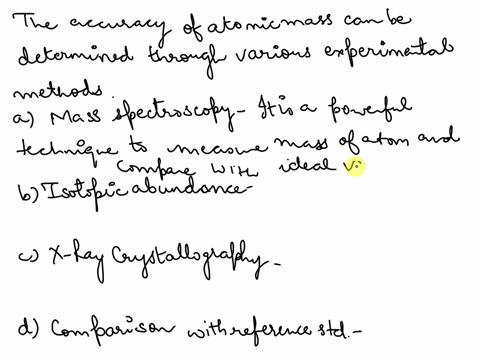 The accuracy of atomic mass can be
determined through various experimental
methods.
a) Mass spectroscopy - It is a powerful
technique to measure mass of atom and
compare with ideal v
b) Isotopic abundance -
c) X-Ray Crystallography -
d) Comparison with reference std. -